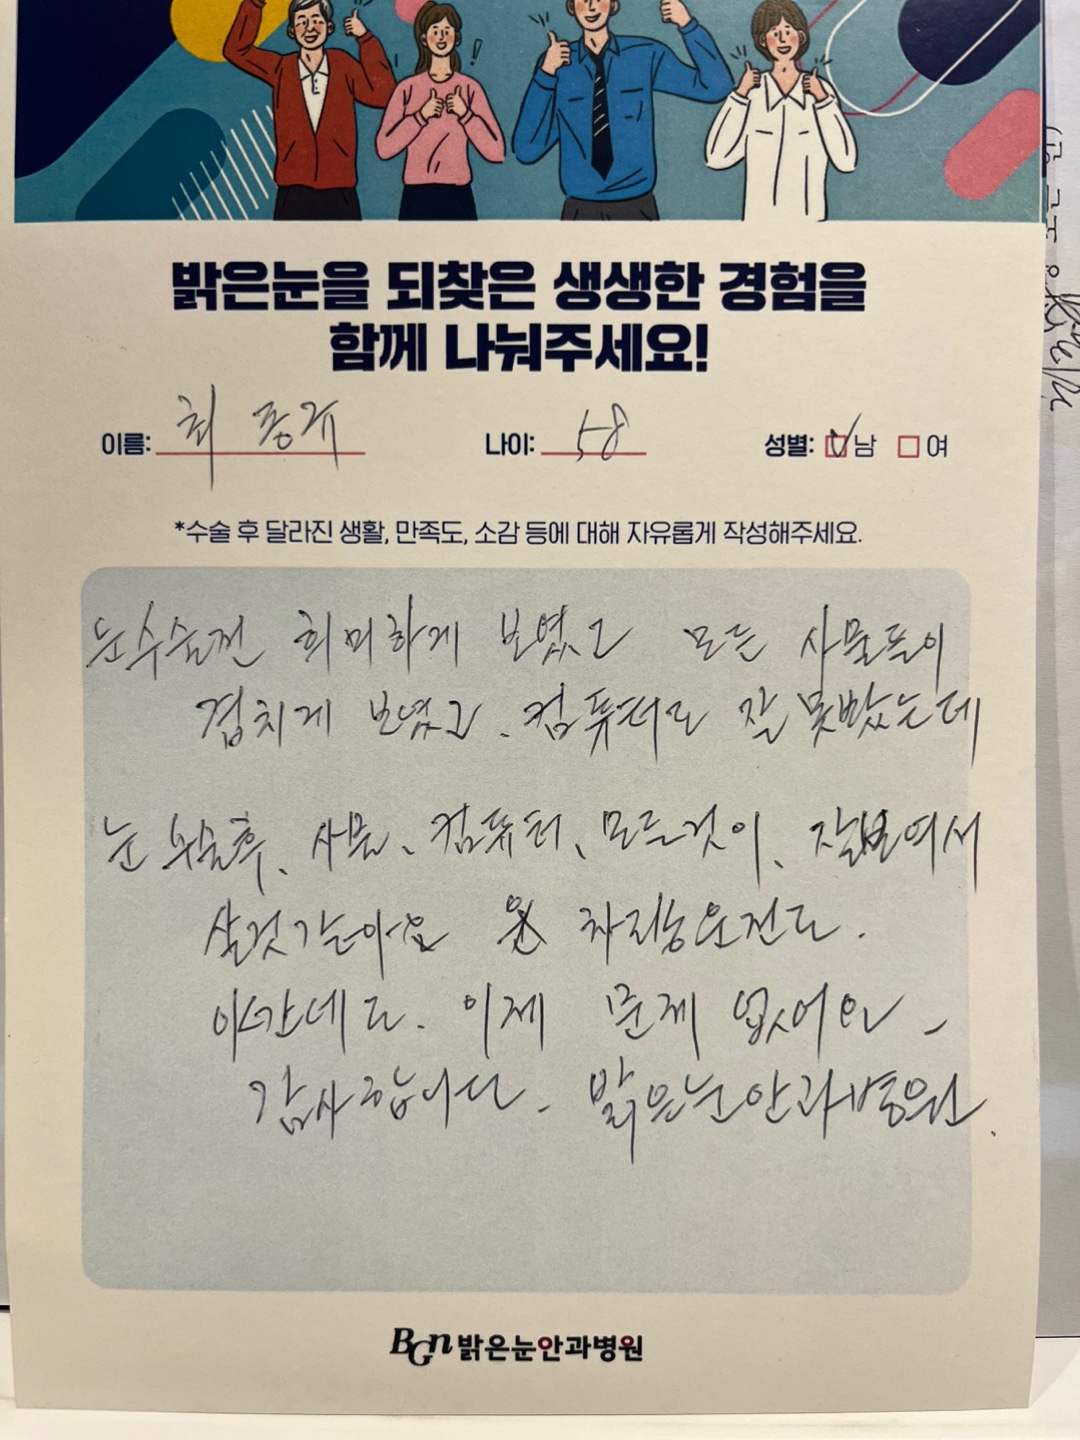 밝은눈을 되찾은 생생한 경험을
함께 나눠주세요!
이름: 최종규 나이: 58 성별: 남 여
*수술 후 달라진 생활, 만족도, 소감 등에 대해 자유롭게 작성해주세요.
눈수술전 희미하게 보였고 모든 사물들이
겹치게 보였고. 컴퓨터도 잘 못봤는데
눈 수술후, 사물, 컴퓨터, 모든것이, 잘보여서
살것같아요 차리능운전도.
야간에도. 이제 문제 없어요.
감사합니다. 밝은눈안과병원.
BGN 밝은눈안과병원